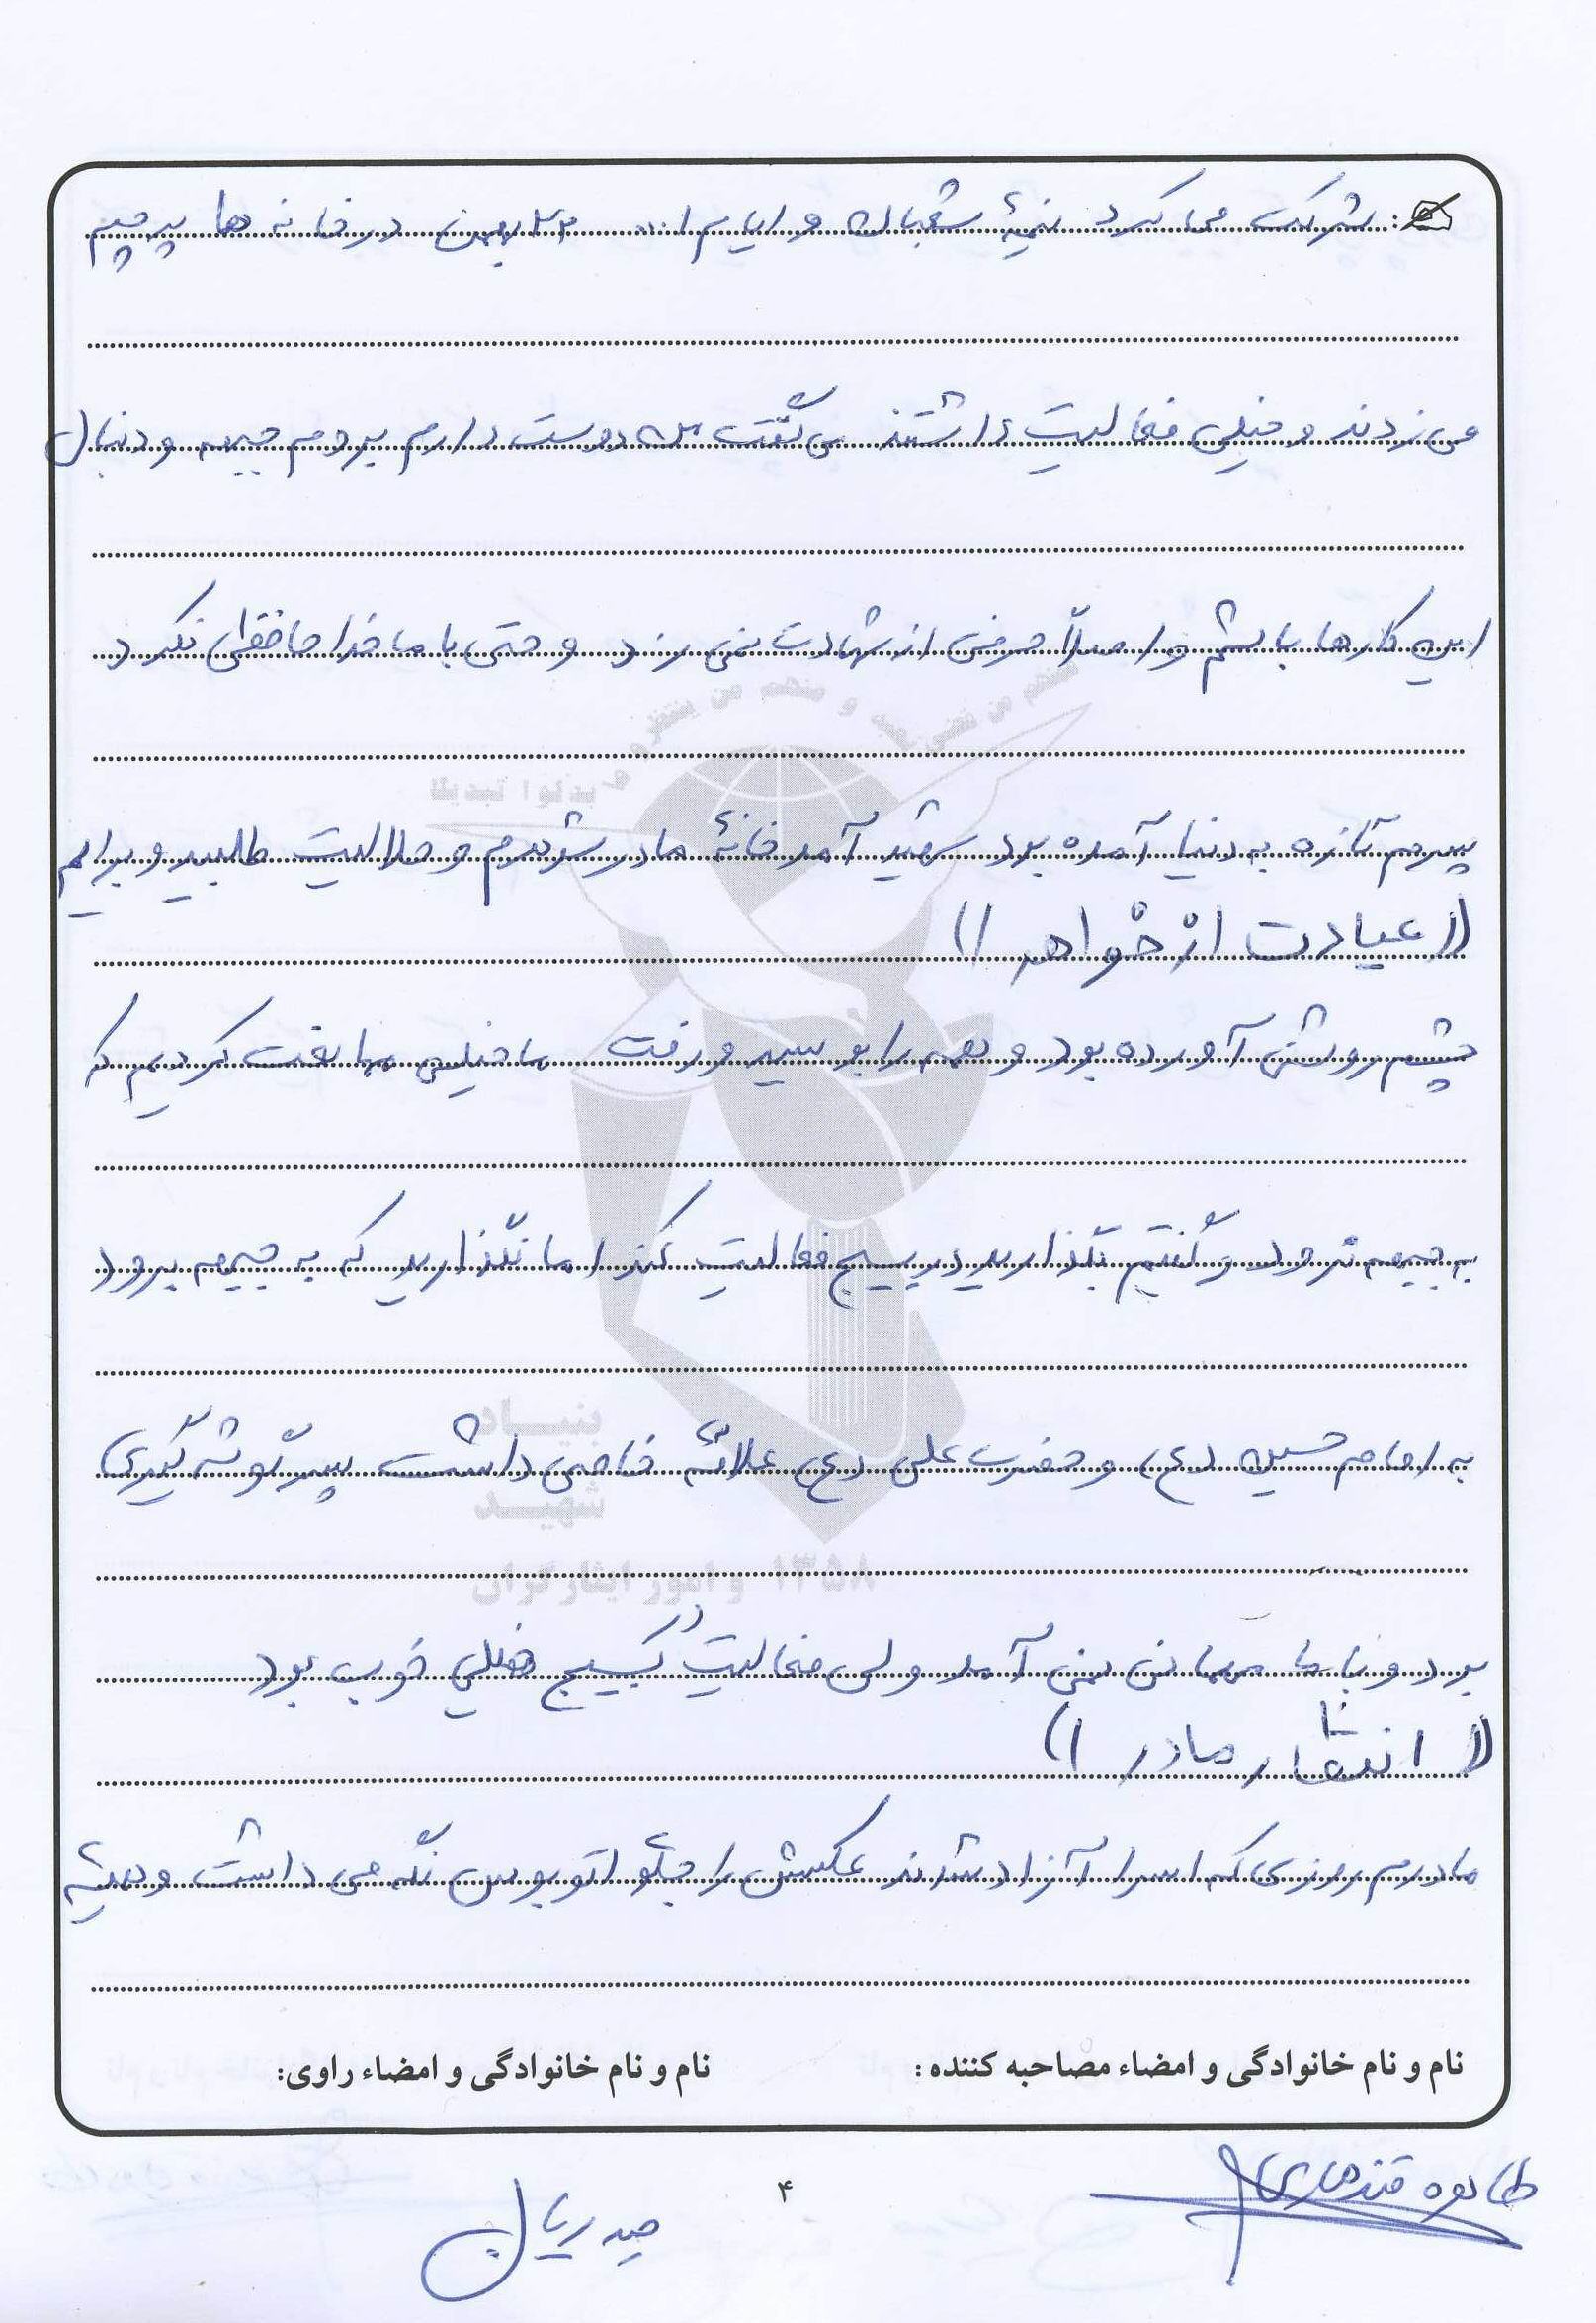 شرکت می کرد نیمۀ شعبان و ایام ا... ۲۲ بهمن در خانه ها پرچم
می زدند و خیلی فعالیت داشتند می گفت من دوست دارم بروم جبهه و دنبال
این کارها باشم و اصلاً حرفی از شهادت نمی زد و حتی با ما خداحافظی نکرد
پسرم تازه به دنیا آمده بود شهید آمد خانۀ مادر شوهرم و حلالیت طلبید و برایم
((عیادت از خواهر))
چشم روشنی آورده بود و همه را بوسید و رفت ما خیلی ممانعت کردیم که
به جبهه نرود و گفتیم بگذارید در بسیج فعالیت کند اما نگذارید که به جبهه برود
به امام حسین (ع) و حضرت علی (ع) علاقه خاصی داشت پسر گوشه گیری
بود و با ما مهمانی نمی آمد ولی فعالیت بسیج خیلی خوب بود
((انتظار مادر))
مادرم روزی که اسرا آزاد شدند عکسش را جلو اتوبوس نگه می داشت و همیشه
نام و نام خانوادگی و امضاء مصاحبه کننده :
نام و نام خانوادگی و امضاء راوی:
طاهره قندهاری
۴
بنیاد
شهید
و امور ایثارگران
۱۳۵۸
فمنهم من قضی نحبه و منهم من ینتظر و ما بدلوا تبدیلا